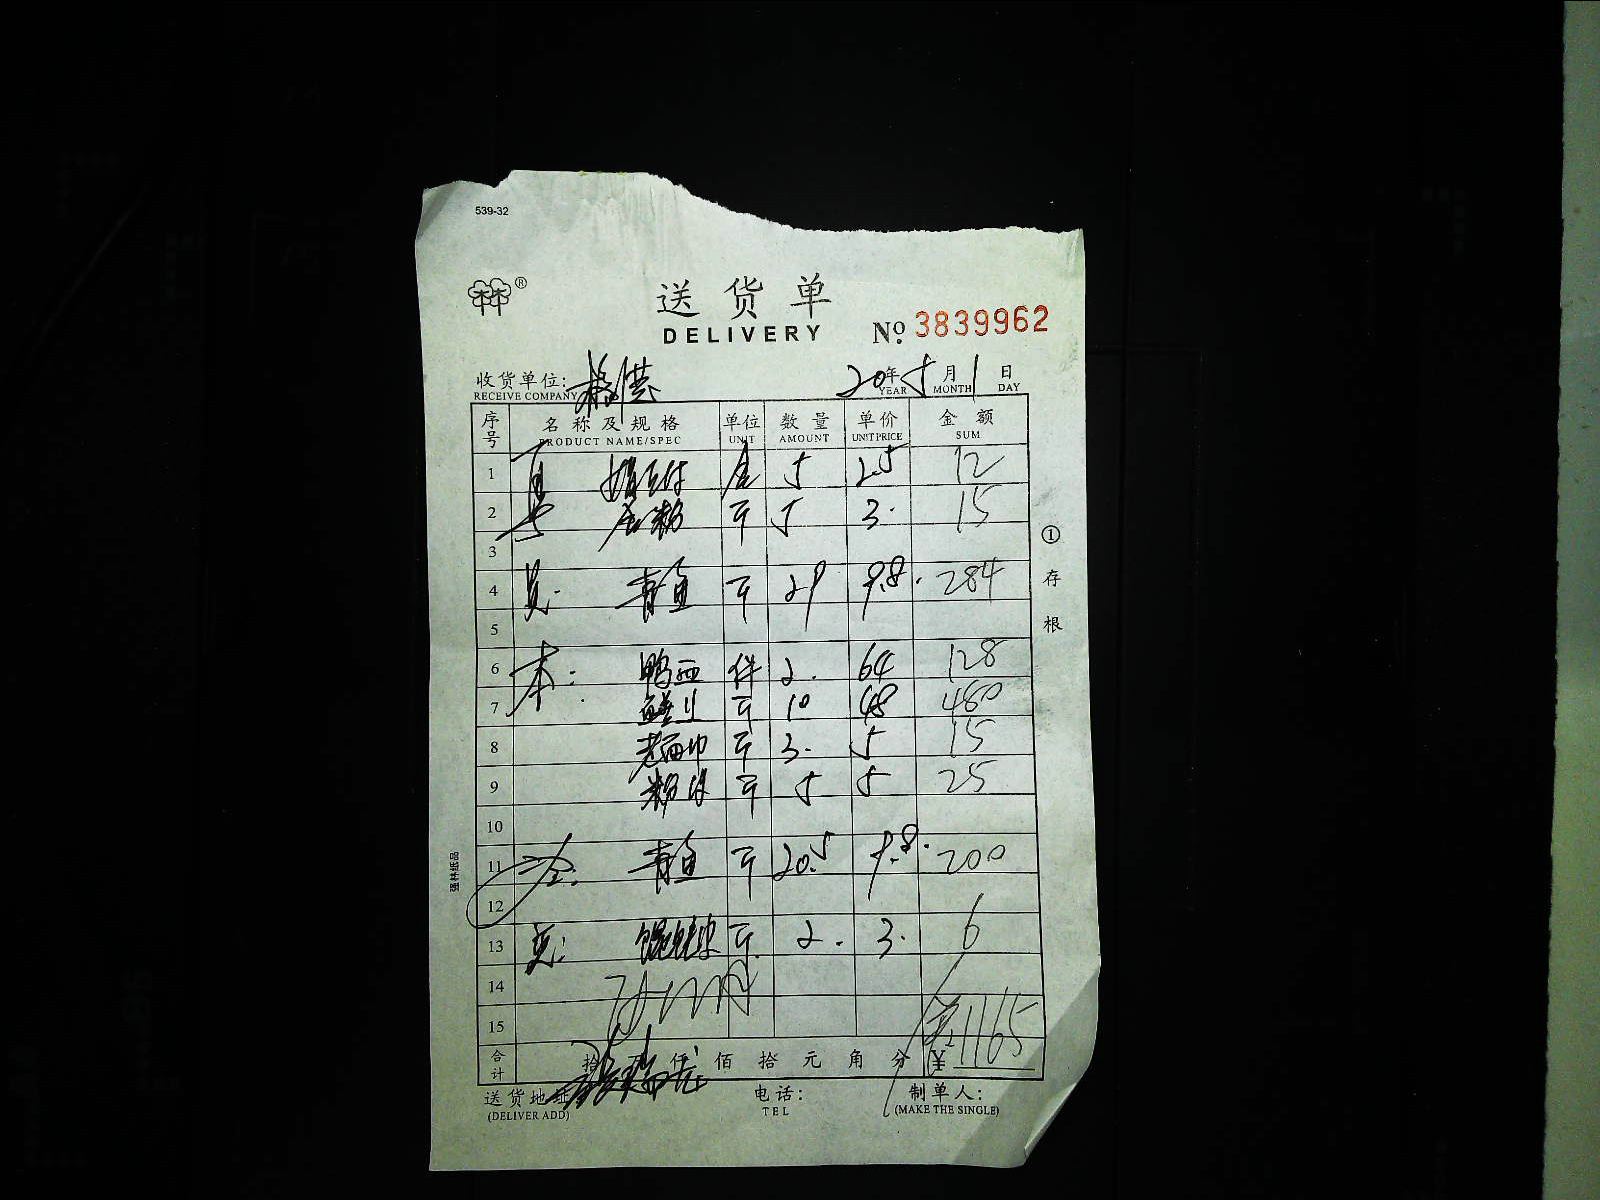 539-32
®
送货单
DELIVERY № 3839962
收货单位: 20年5月1日
RECEIVE COMPANY YEAR MONTH DAY
序号 名称及规格 单位 数量 单价 金额
PRODUCT NAME/SPEC UNIT AMOUNT UNIT PRICE SUM
1 5 2.5 12
2 斤 5 3. 15
3
4 青鱼 斤 29 9.8. 284
5
6 本: 鸭血 件 2. 64 128
7 斤 10 48 480
8 斤 3. 5 15
9 斤 5 5 25
10
11 青鱼 斤 20.5 9.8. 200
12
13 馄饨皮 斤. 2. 3. 6
14
15
合计 拾万仟佰拾元角分 ¥ 1165
送货地址 电话: 制单人:
(DELIVER ADD) TEL (MAKE THE SINGLE)
①存根
强林纸品